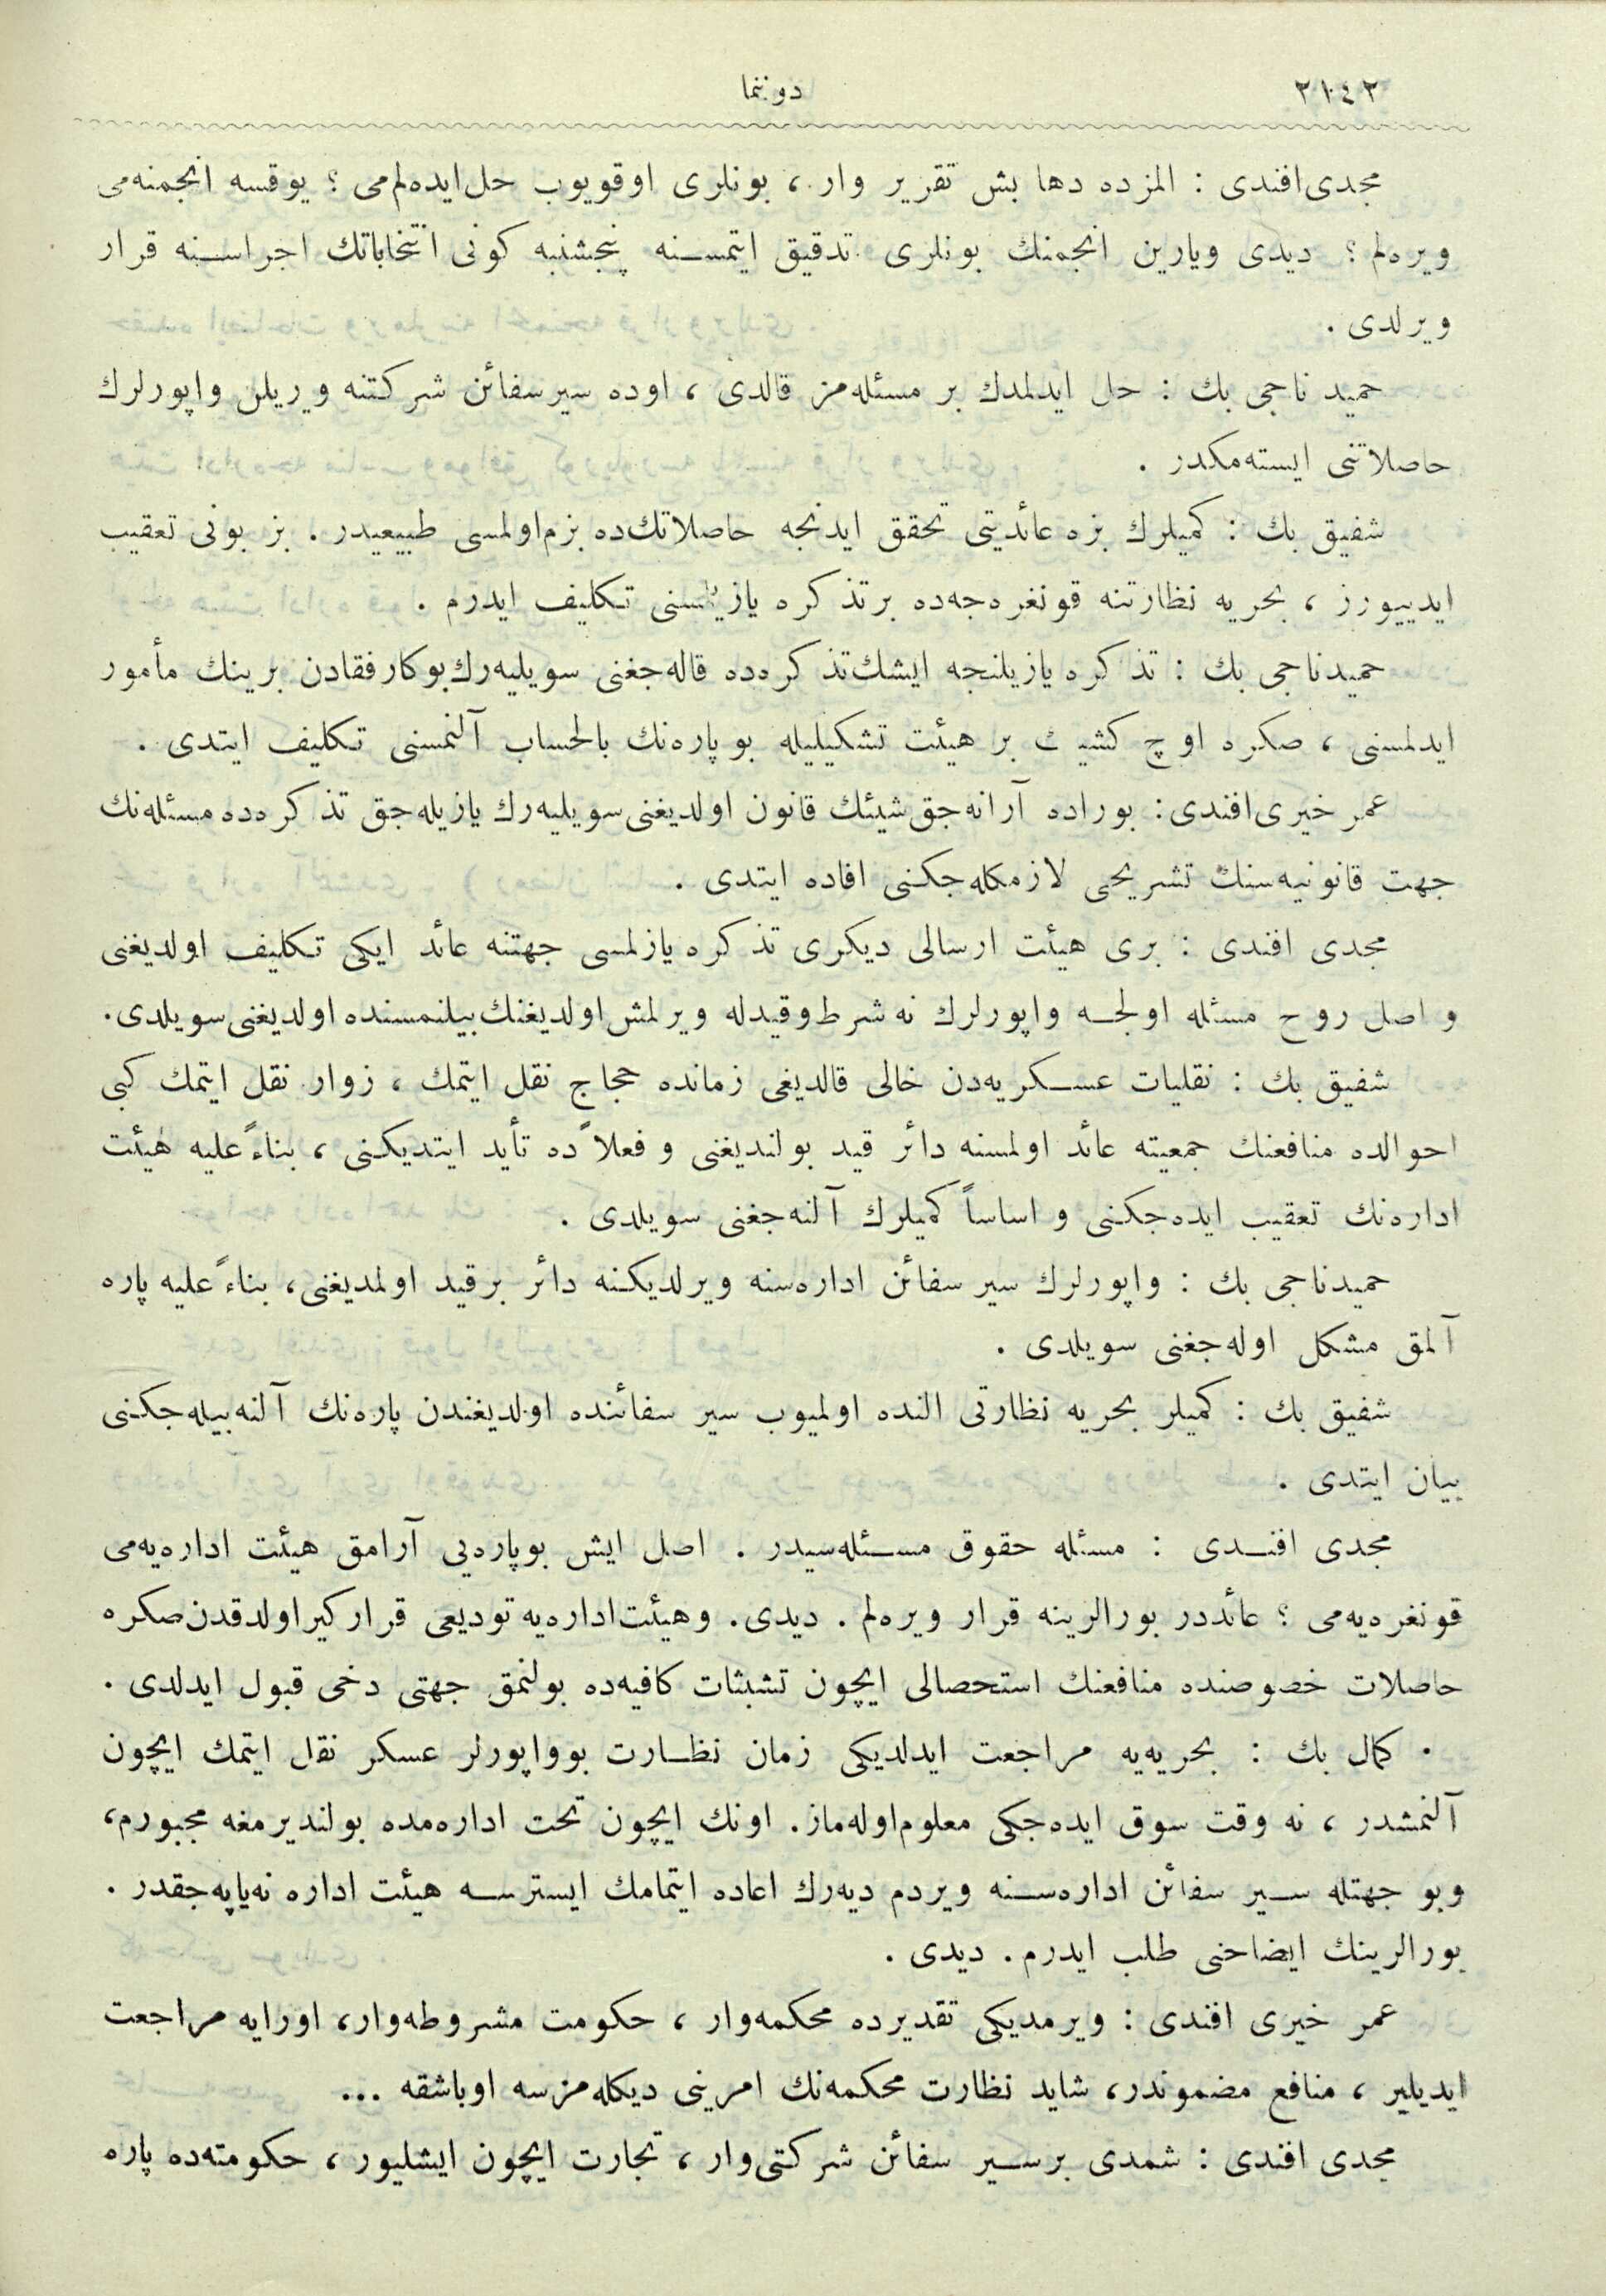 ٢١٤٢
دوننما
مجدی‌افندی : المزده دها بش تقریر وار ، بونلری اوقویوب حل‌ایده‌لم‌می ؟ یوقسه انجمنه‌می
ویره‌لم ؟ دیدی ویارین انجمنك بونلری تدقیق ایتمسنه پنجشنبه كونی انتخاباتك اجراسنه قرار
ویرلدی .
حمید ناجی بك : حل ایدلمدك بر مسئله‌مز قالدی ، اوده سیرسفائن شركتنه ویریلن واپورلرك
حاصلاتنی ایسته‌مكدر .
شفیق بك : كمیلرك بزه عائدیتی تحقق ایدنجه حاصلاتك‌ده بزم‌اولمسی طبیعیدر . بز بونی تعقیب
ایدییورز ، بحریه نظارتنه قونغره‌جه‌ده برتذكره یازیلمسنی تكلیف ایدرم .
حمیدناجی بك : تذكره یازیلنجه ایشك‌تذكره‌ده قاله‌جغنی سویلیه‌رك‌بوكارفقادن برینك مأمور
ایدلمسنی ، صكره اوچ كشیلك بر هیئت تشكیلیله بو پاره‌نك بالحساب آلنمسنی تكلیف ایتدی .
عمر خیری‌افندی : بوراده آرانه‌جق‌شیئك قانون اولدیغنی‌سویلیه‌رك یازیله‌جق تذكره‌ده مسئله‌نك
جهت قانونیه‌سنك تشریحی لازمكله‌جكنی افاده ایتدی .
مجدی افندی : بری هیئت ارسالی دیكری تذكره یازلمسی جهتنه عائد ایكی تكلیف اولدیغنی
و اصل روح مسئله اولجه واپورلرك نه‌شرط‌وقیدله ویرلمش‌اولدیغنك‌بیلنمسنده‌اولدیغنی‌سویلدی.
شفیق بك : نقلیات عسكریه‌دن خالی قالدیغی زمانده حجاج نقل ایتمك ، زوار نقل ایتمك كبی
احوالده منافعنك جمعیته عائد اولمسنه دائر قید بولندیغنی و فعلاً ده تأید ایتدیكنی ، بناءً علیه هیئت
اداره‌نك تعقیب ایده‌جكنی و اساساً كمیلرك آلنه‌جغنی سویلدی .
حمیدناجی بك : واپورلرك سیر سفائن اداره‌سنه ویرلدیكنه دائر برقید اولمدیغنی، بناءً علیه پاره
آلمق مشكل اوله‌جغنی سویلدی .
شفیق بك : كمیلر بحریه نظارتی النده اولمیوب سیر سفائنده اولدیغندن پاره‌نك آلنه‌بیله‌جكنی
بیان ایتدی .
مجدی افندی : مسئله حقوق مسئله‌سیدر . اصل ایش بوپاره‌یی آرامق هیئت اداره‌یه‌می
قونغره‌یه‌می ؟ عائددر بورالرینه قرار ویره‌لم . دیدی . وهیئت‌اداره‌یه تودیعی قرارگیراولدقدن‌صكره
حاصلات خصوصنده منافعنك استحصالی ایچون تشبثات كافیه‌ده بولنمق جهتی دخی قبول ایدلدی .
كمال بك : بحریه‌یه مراجعت ایدلدیكی زمان نظارت بوواپورلر عسكر نقل ایتمك ایچون
آلنمشدر ، نه وقت سوق ایده‌جكی معلوم‌اوله‌ماز . اونك ایچون تحت اداره‌مده بولندیرمغه مجبورم،
وبو جهتله سیر سفائن اداره‌سنه ویردم دیه‌رك اعاده ایتمامك ایسترسه هیئت اداره نه‌یاپه‌جقدر .
بورالرینك ایضاحنی طلب ایدرم . دیدی .
عمر خیری افندی : ویرمدیكی تقدیرده محكمه‌وار ، حكومت مشروطه‌وار، اورایه مراجعت
ایدیلیر ، منافع مضموندر، شاید نظارت محكمه‌نك امرینی دیكله‌مزسه اوباشقه ...
مجدی افندی : شمدی برسیر سفائن شركتی‌وار ، تجارت ایچون ایشلیور ، حكومته‌ده پاره